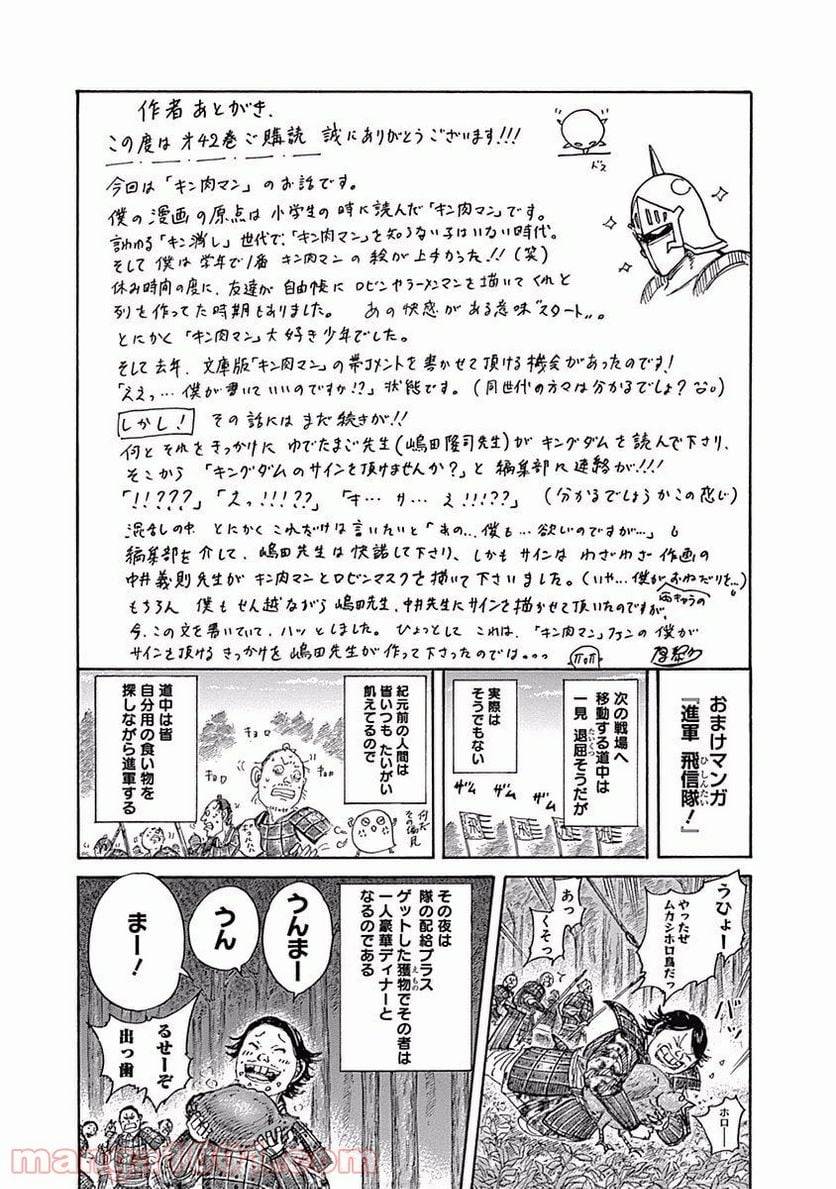 作者あとがき.
この度は才42巻ご購読 誠にありがとうございます!!!
ドス
今回は「キン肉マン」のお話です。
僕の漫画の原点は小学生の時に読んだ「キン肉マン」です。
言わゆる「キン消し」世代で、「キン肉マン」を知らない子はいない時代。
そして僕は学年で1番 キン肉マンの絵が上手かった!!(笑)
休み時間の度に、友達が自由帳に ロビンやラーメンマンを描いてくれと
列を作ってた時期もありました。 あの快感がある意味"スタート"。
とにかく「キン肉マン」大好き少年でした。
そして去年、文庫版「キン肉マン」の帯コメントを書かせて頂ける機会があったのです!
「ええっ…僕が書いていいのですか!?」状態です。(同世代の方々は分かるでしょ?
しかし! その話にはまだ続きが!!
何とそれをきっかけに ゆでたまご先生(嶋田隆司先生)が キングダムを読んで下さり、
そこから 「キングダムのサインを頂けませんか?」と 編集部に連絡が!!!
「!!???」「えっ!!!??」「オ… リ… え!!!??」 (分かるでしょうかこの感じ)
混乱の中 とにかくこれだけは言いたいと「あの…僕も…欲しいのですが…」
編集部を介して、嶋田先生は快諾して下さり、しかもサインは わざわざ作画の
中井義則先生が キン肉マンとロビンマスクを描いて下さいました。(いや…僕がおねだりを…)
もちろん 僕もせん越ながら嶋田先生、中井先生にサインを描かせて頂いたのですが、
今、この文を書いていて、ハッとしました。 ひょっとして これは、「キン肉マン」ファンの僕が
サインを頂けるきっかけを嶋田先生が作って下さったのでは。。。
おまけマンガ
『進軍 飛信隊!』
ひしんたい
次の戦場へ
移動する道中は
一見 退屈そうだが
たいくつ
実際は
そうでもない
ザム
ザム
ザム
飛
飛
紀元前の人間は
皆いつも たいがい
飢えてるので
何だ
その偏見
道中は皆
自分用の食い物を
探しながら進軍する
うひょー
やったぜ
ムカシホロ鳥だっ
あっ
くそっ
ホロー
その夜は
隊の配給プラス
ゲットした獲物でその者は
えもの
一人豪華ディナーと
なるのである
うんまー
うん
まー!
るせーぞ
出っ歯